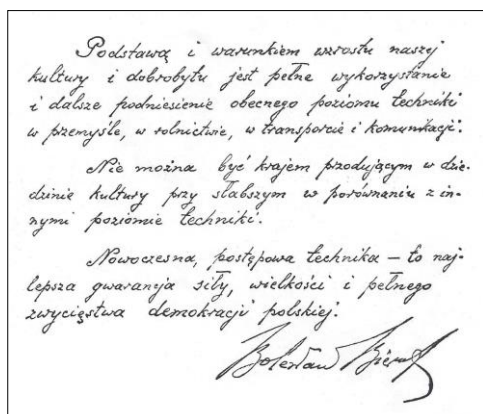 Podstawą i warunkiem wzrostu naszej
kultury i dobrobytu jest pełne wykorzystanie
i dalsze podniesienie obecnego poziomu techniki
w przemyśle, w rolnictwie, w transporcie i komunikacji.
Nie można być krajem przodującym w dzie-
dzinie kultury przy słabszym w porównaniu z in-
nymi poziomie techniki.
Nowoczesna, postępowa technika — to naj-
lepsza gwarancja siły, wielkości i pełnego
zwycięstwa demokracji polskiej.
Bolesław Bierut